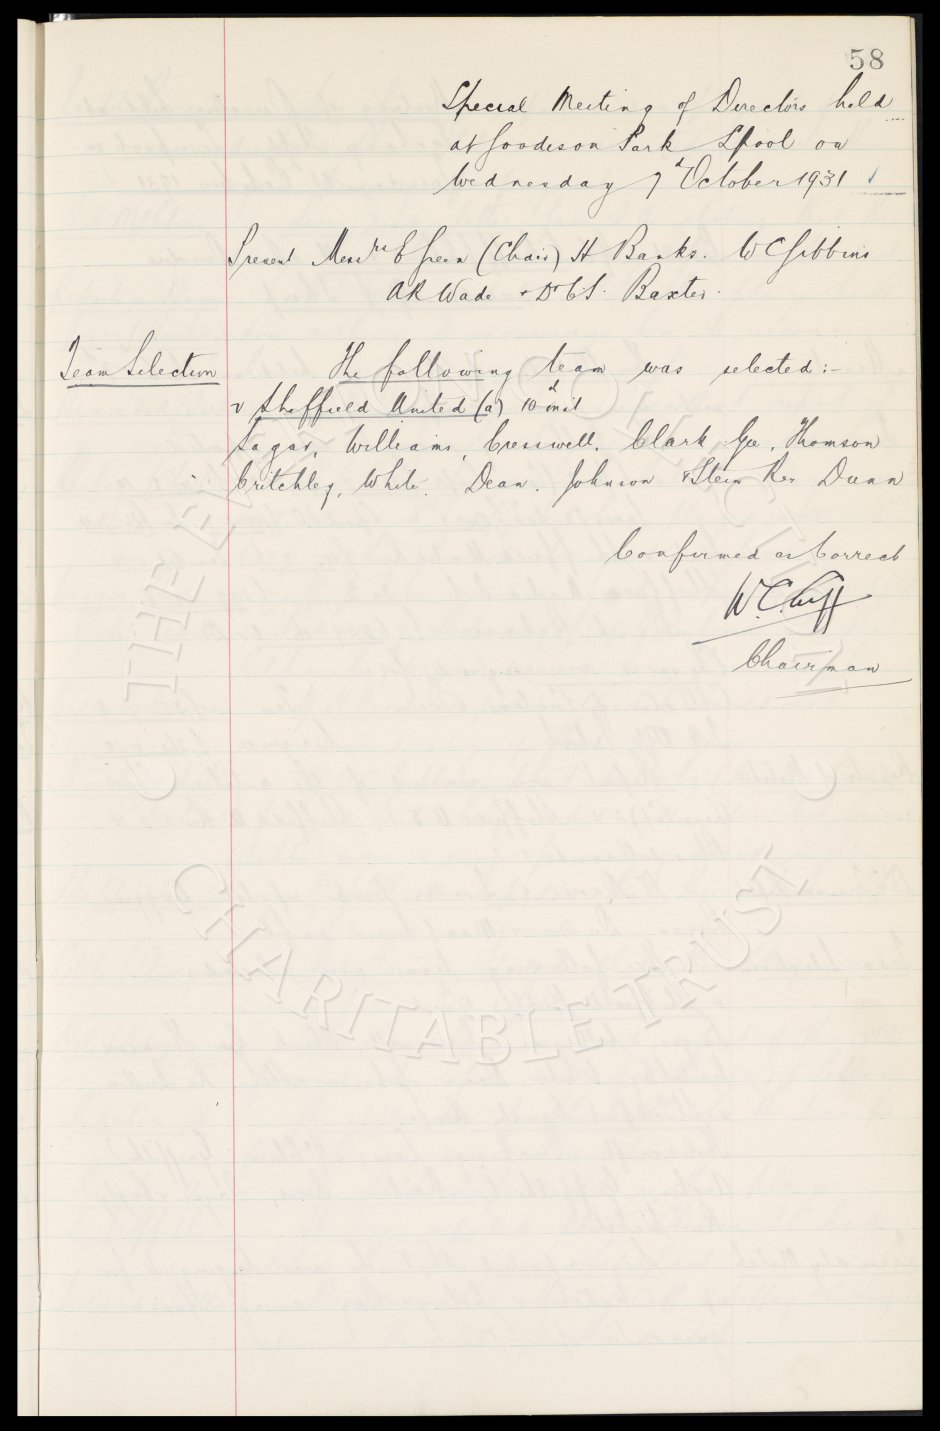 58
Special Meeting of Directors held
at Goodison Park L'pool on
Wednesday 7th October 1931
Present Messrs E Green (Chair) H Banks. W C Gibbins
A R Wade & Dr C S. Baxter.
Team Selection
The following team was selected :-
v Sheffield United (a) 10th inst
Sagar, Williams, Cresswell. Clark Gee, Thomson
Critchley, White. Dean. Johnson & Stein Res Dunn
Confirmed as Correct
W. C. Cuff
Chairman
THE EVERTON COLLECTION
CHARITABLE TRUST